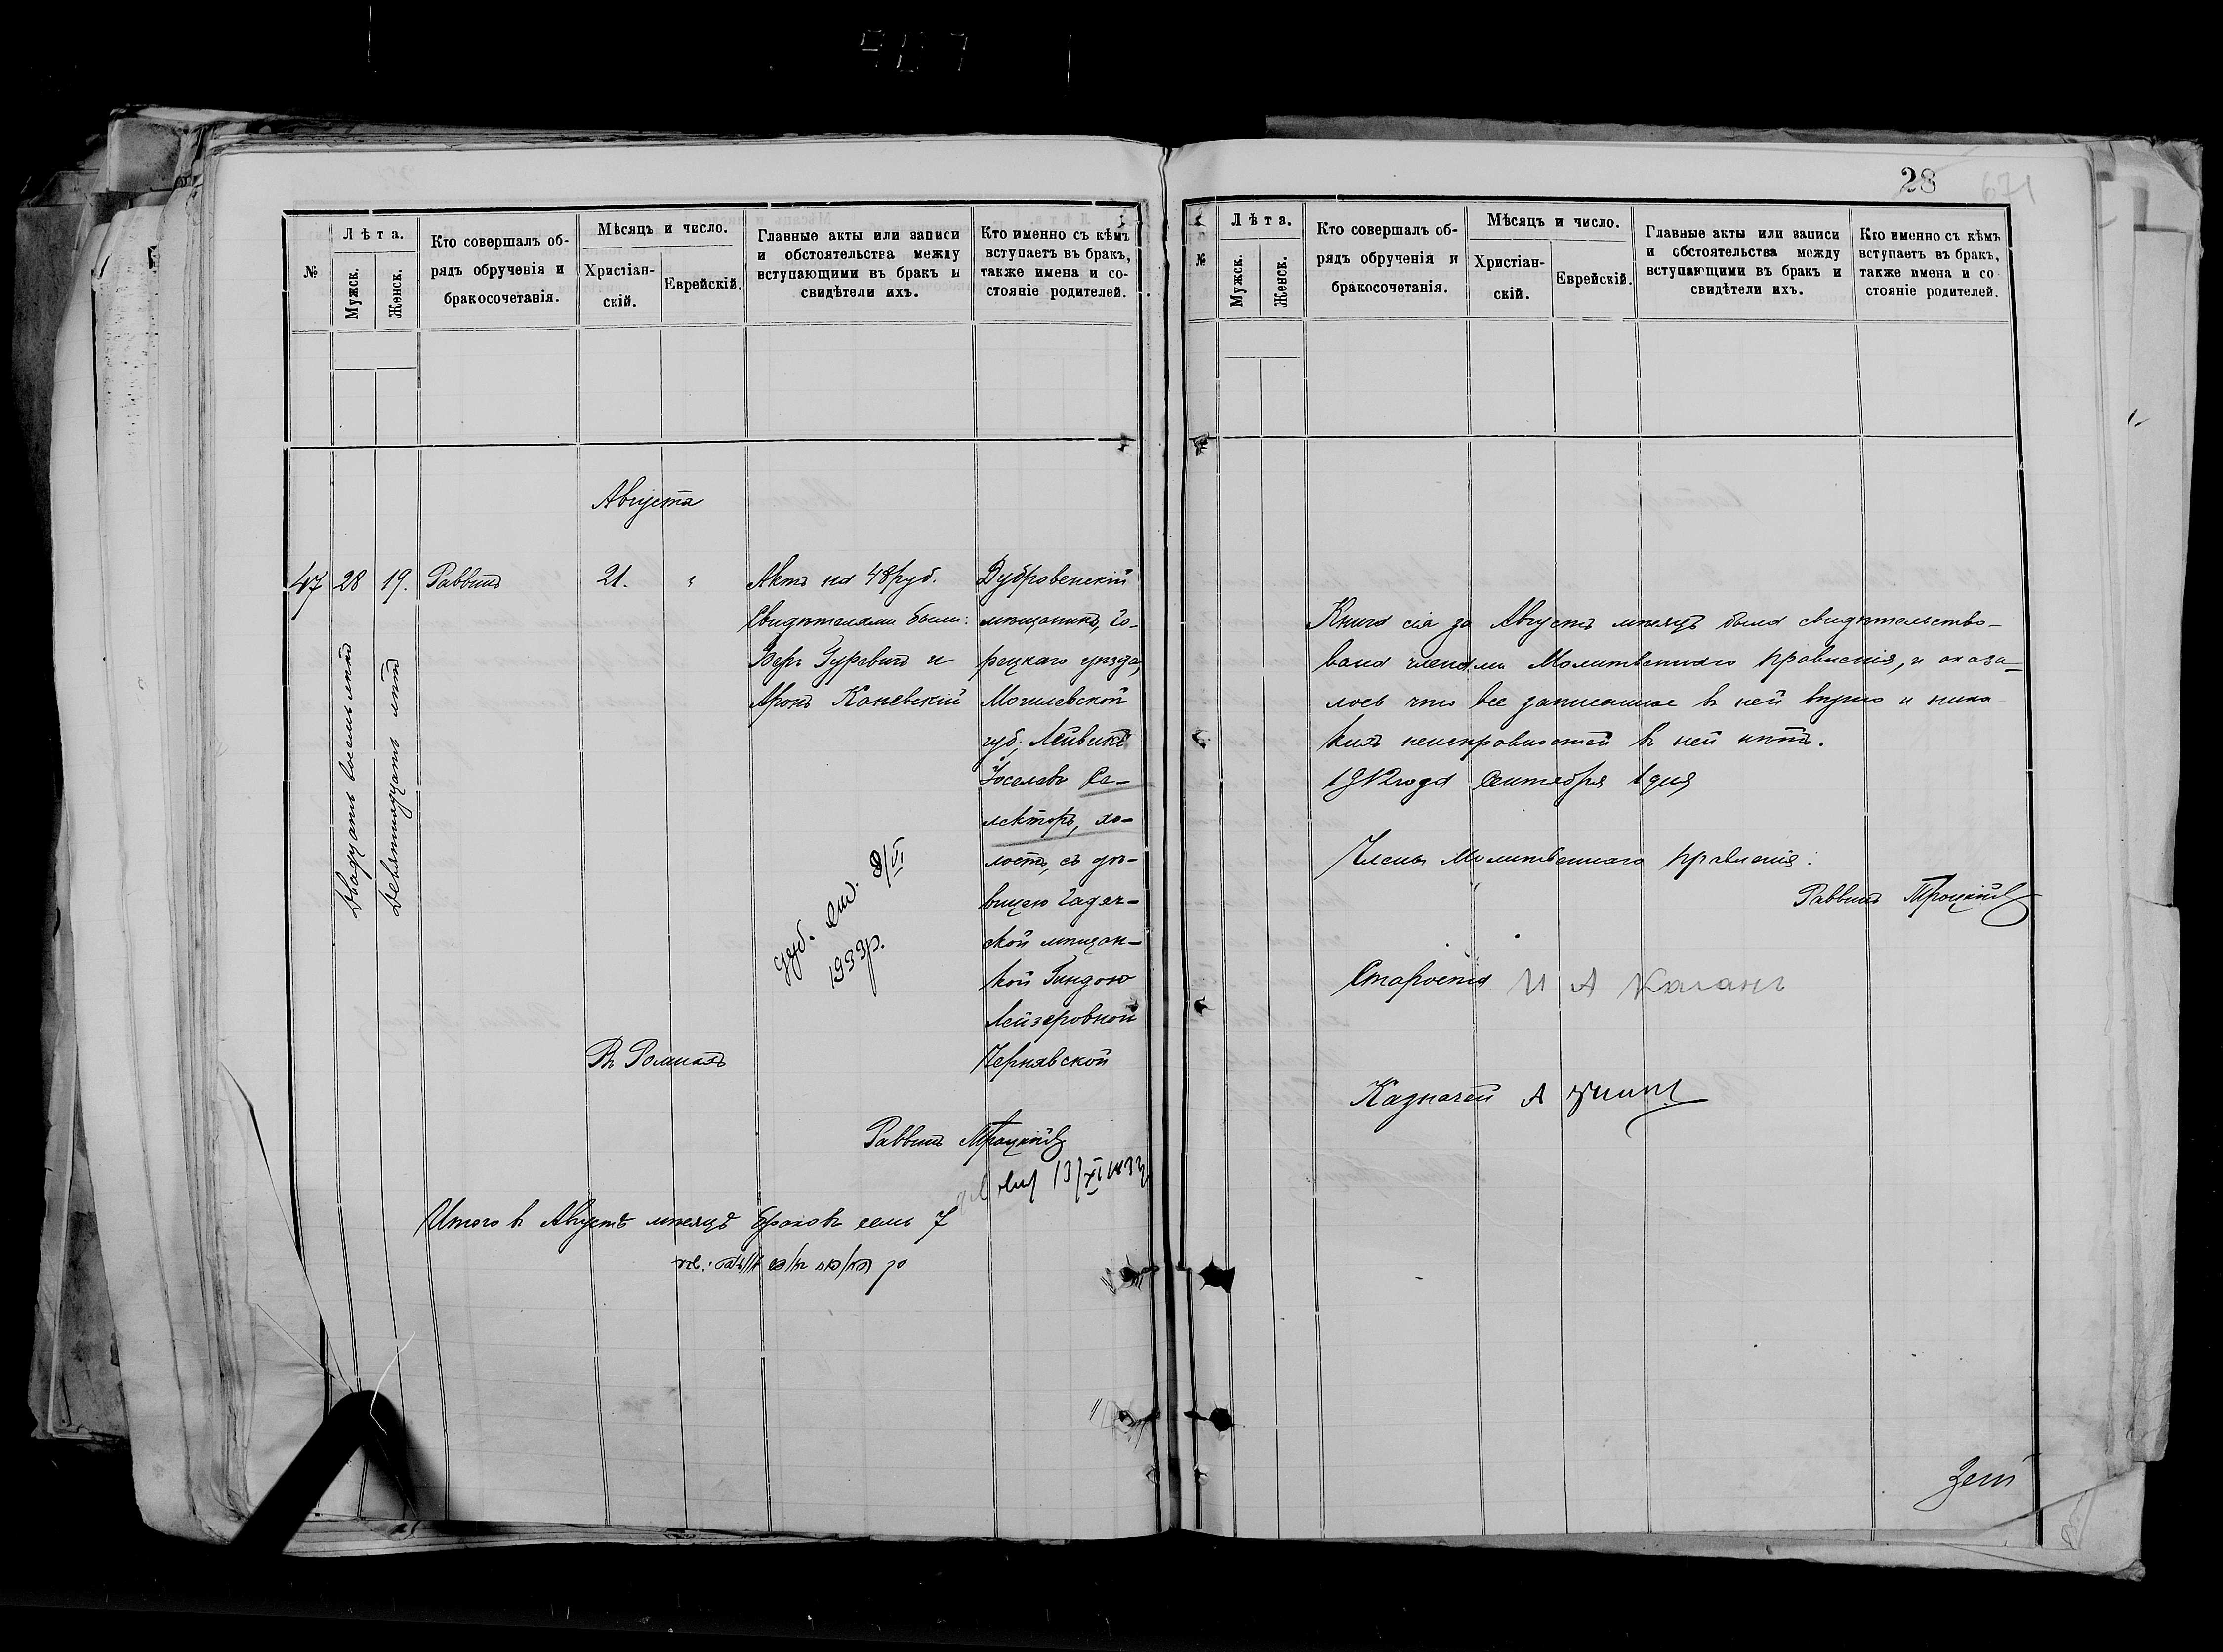 28
671
№
Лѣта.
Мужск.
Женск.
Кто совершалъ об-
рядъ обрученія и
бракосочетанія.
Мѣсяцъ и число.
Христіан-
скій.
Еврейскій.
Главные акты или записи
и обстоятельства между
вступающими въ бракъ и
свидѣтели ихъ.
Кто именно съ кѣмъ
вступаетъ въ бракъ,
также имена и со-
стояніе родителей.
Августа
47
28
Двадцать восемь лѣтъ
19.
Девятнадцать лѣтъ
Раввинъ
21.
"
Актъ на 48 руб.
Свидѣтелями были:
Беръ Гуревичъ и
Аронъ Каневскій
Дубровенскій
мѣщанинъ, Го-
рецкаго уѣзда,
Могилевской
губ. Лейвикъ
Іоселевъ Ре-
лекторъ, хо-
лостъ, съ дѣ-
вицею Гадяч-
ской мѣщан-
кой Гиндою
Лейзеровной
Чернявской
8/VI
1933р.
Въ Ромнахъ
Раввинъ Троцкій
13/XI
Итого въ Августѣ мѣсяцѣ браковъ семь 7
№
Лѣта.
Мужск.
Женск.
Кто совершалъ об-
рядъ обрученія и
бракосочетанія.
Мѣсяцъ и число.
Христіан-
скій.
Еврейскій.
Главные акты или записи
и обстоятельства между
вступающими въ бракъ и
свидѣтели ихъ.
Кто именно съ кѣмъ
вступаетъ въ бракъ,
также имена и со
стояніе родителей.
Книга сія за Августъ мѣсяцъ была свидѣтельство-
вана членами Молитвеннаго правленія, и оказа-
лось что все записанное въ ней вѣрно и ника
кихъ неисправностей въ ней нѣтъ.
1912 года Сентября 1 дня
Члены Молитвеннаго правленія:
Раввинъ Троцкій
Староста И А Каганъ
Казначей А